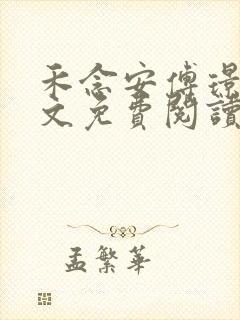 禾念安傅璟
文免費閱讀
孟繁華